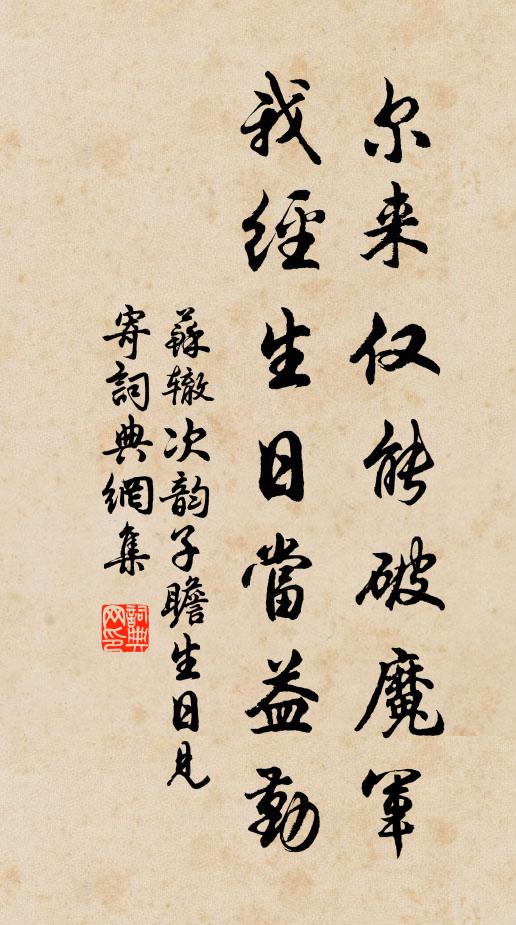 尔来仅能破魔军
我經生日當益勤
蘇辙次韵子瞻生日見
寄詞典網集
詞典网印